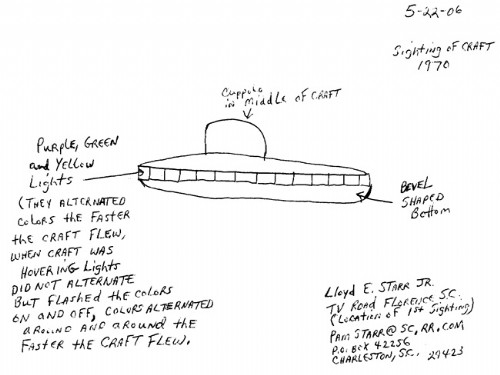 5-22-06
Sighting of CRAFT
1970
Cuppola
in Middle of CRAFT
Purple, GREEN
and Yellow
Lights
(THEY ALTERNATED
COLORS the FASTER
the CRAFT FLEW,
WHEN CRAFT WAS
HOVERING Lights
DID NOT ALTERNATE
BUT FLASHED the COLORS
ON AND OFF, COLORS ALTERNATED
AROUND AND AROUND the
FASTER the CRAFT FLEW.
BEVEL
SHAPED
Bottom
Lloyd E. STARR JR.
TV Road Florence S.C.
(Location of 1st Sighting)
PAM STARR@SC.RR.COM
P.O. BOX 42256
CHARLESTON, S.C. 29423